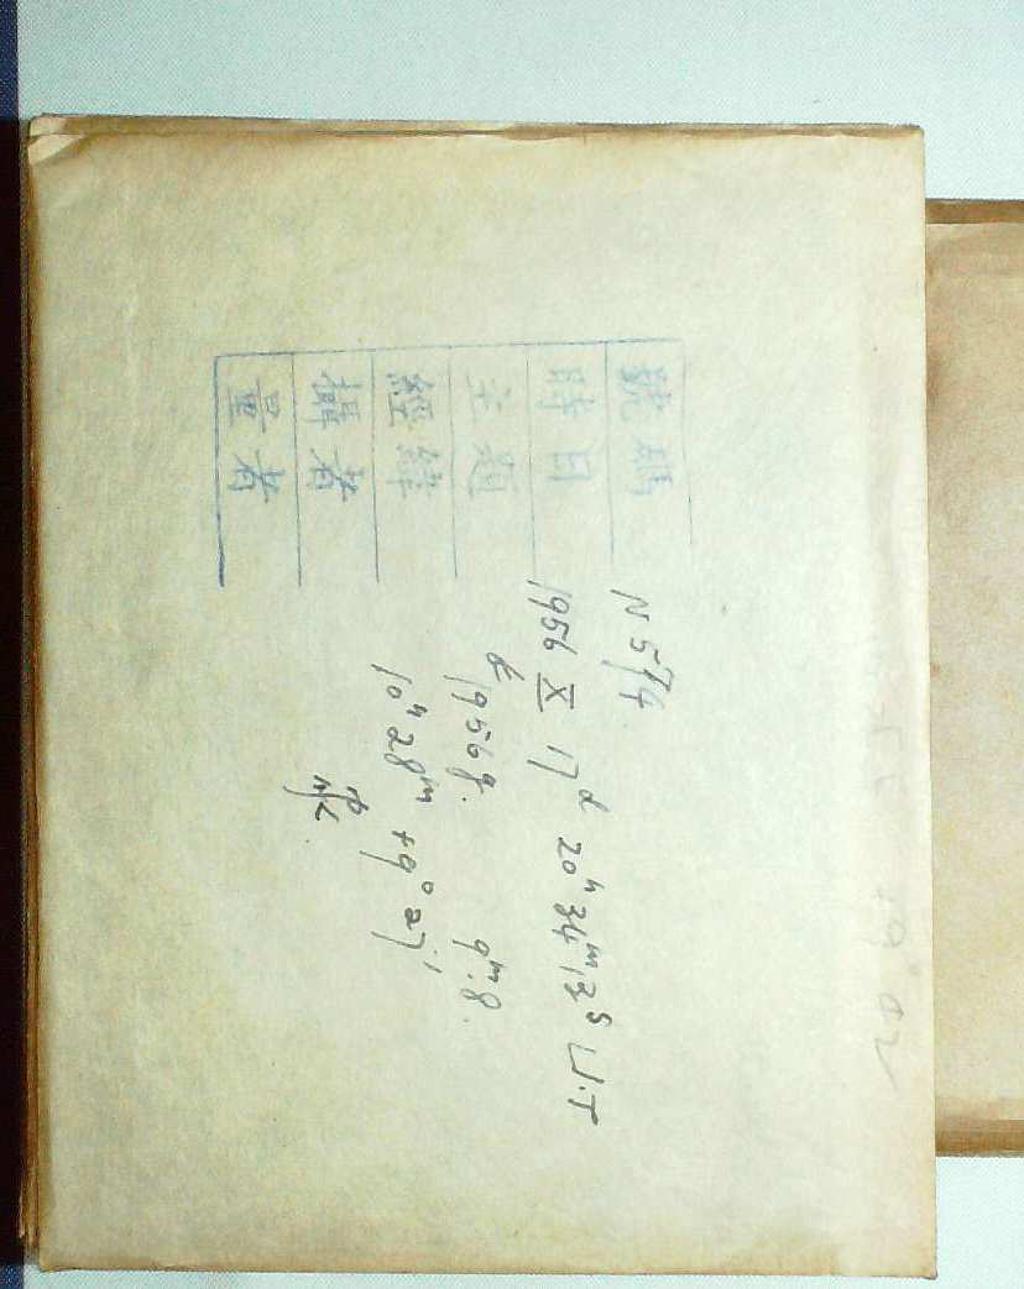 號碼 N 574
時日 1956 X 17ᵈ 20ʰ 34ᵐ 13ˢ U.T
主題 1956 g. 9ᵐ.8
經緯 10ʰ 28ᵐ +9° 27′
攝者
量者